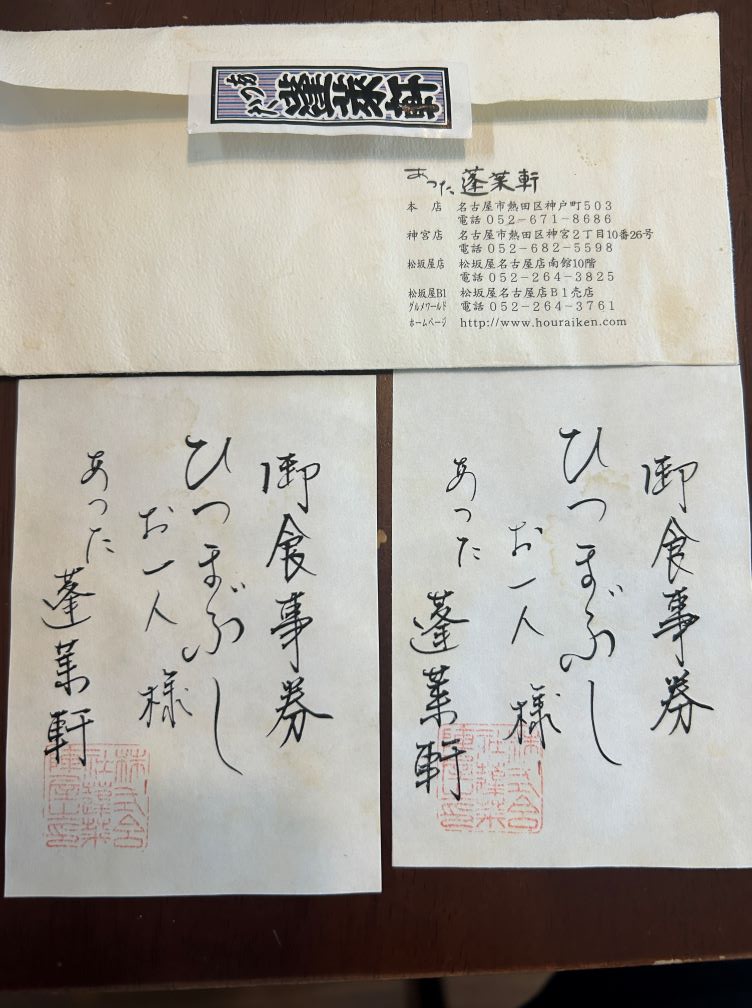 あつた蓬莱軒
あつた蓬莱軒
本店 名古屋市熱田区神戸町503
電話 052-671-8686
神宮店 名古屋市熱田区神宮2丁目10番26号
電話 052-682-5598
松坂屋店 松坂屋名古屋店南館10階
電話 052-264-3825
松坂屋B1 松坂屋名古屋店B1売店
グルメワールド 電話 052-264-3761
ホームページ http://www.houraiken.com
御食事券
ひつまぶし
お一人様
あつた蓬莱軒
御食事券
ひつまぶし
お一人様
あつた蓬莱軒